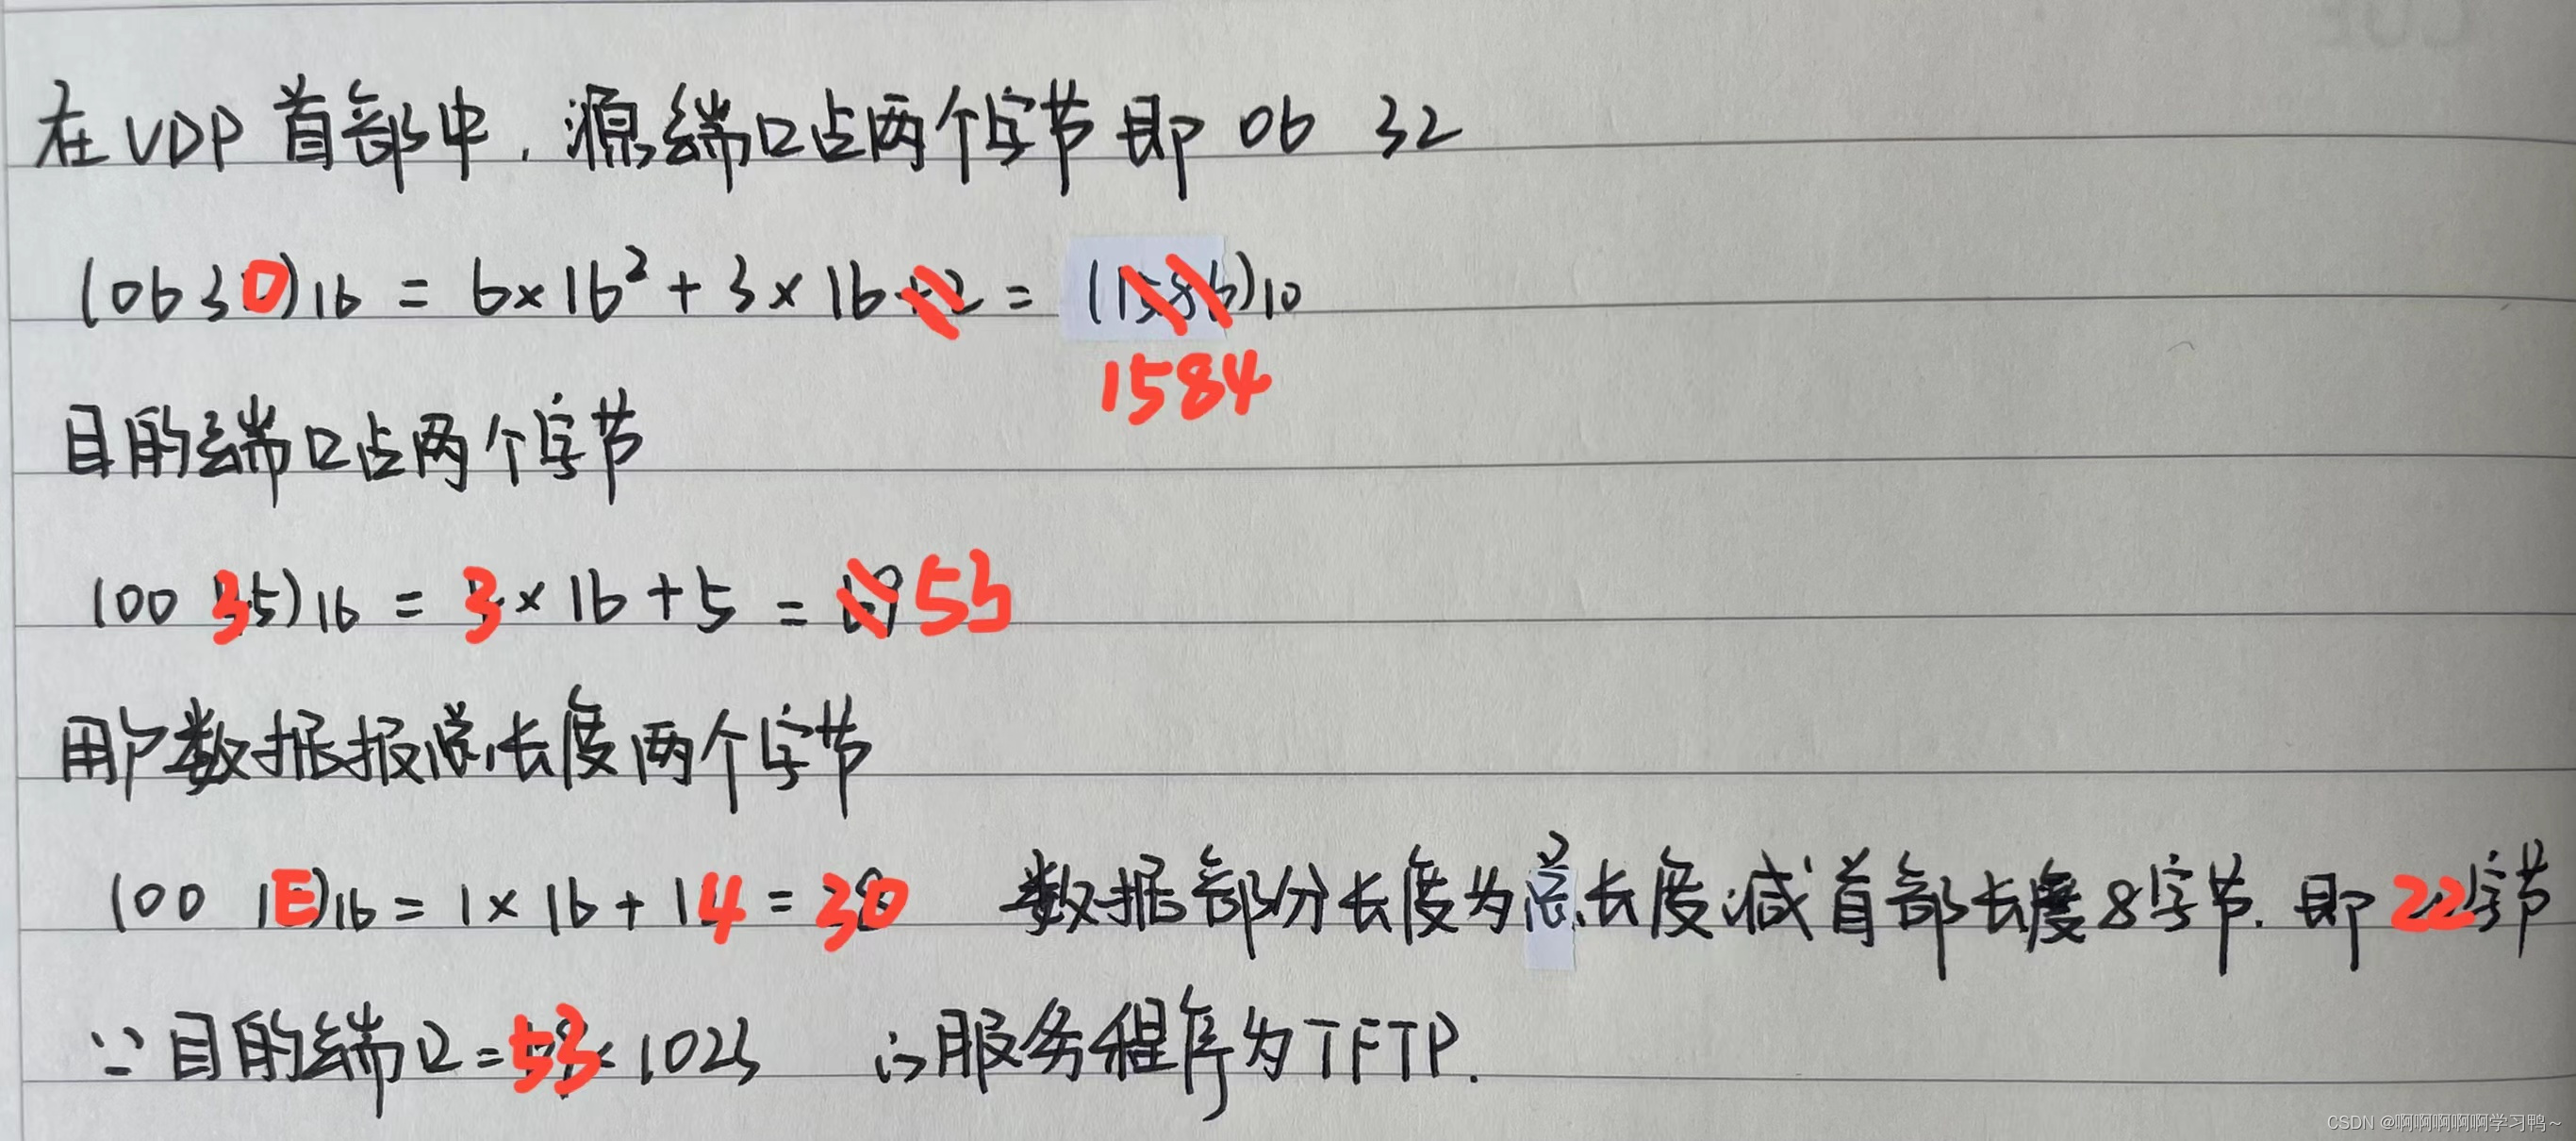 在UDP首部中，源端口占两个字节即 06 32
(0630)16 = 6×16² + 3×16+2 = (1586)10
1584
目的端口占两个字节
(00 35)16 = 3×16+5 = 69 53
用户数据报总长度两个字节
(00 1E)16 = 1×16+14 = 30 数据部分长度为总长度减首部长度8字节. 即22字节
∵目的端口=53<1023 ∴服务程序为TFTP.
CSDN @啊啊啊啊啊学习鸭~